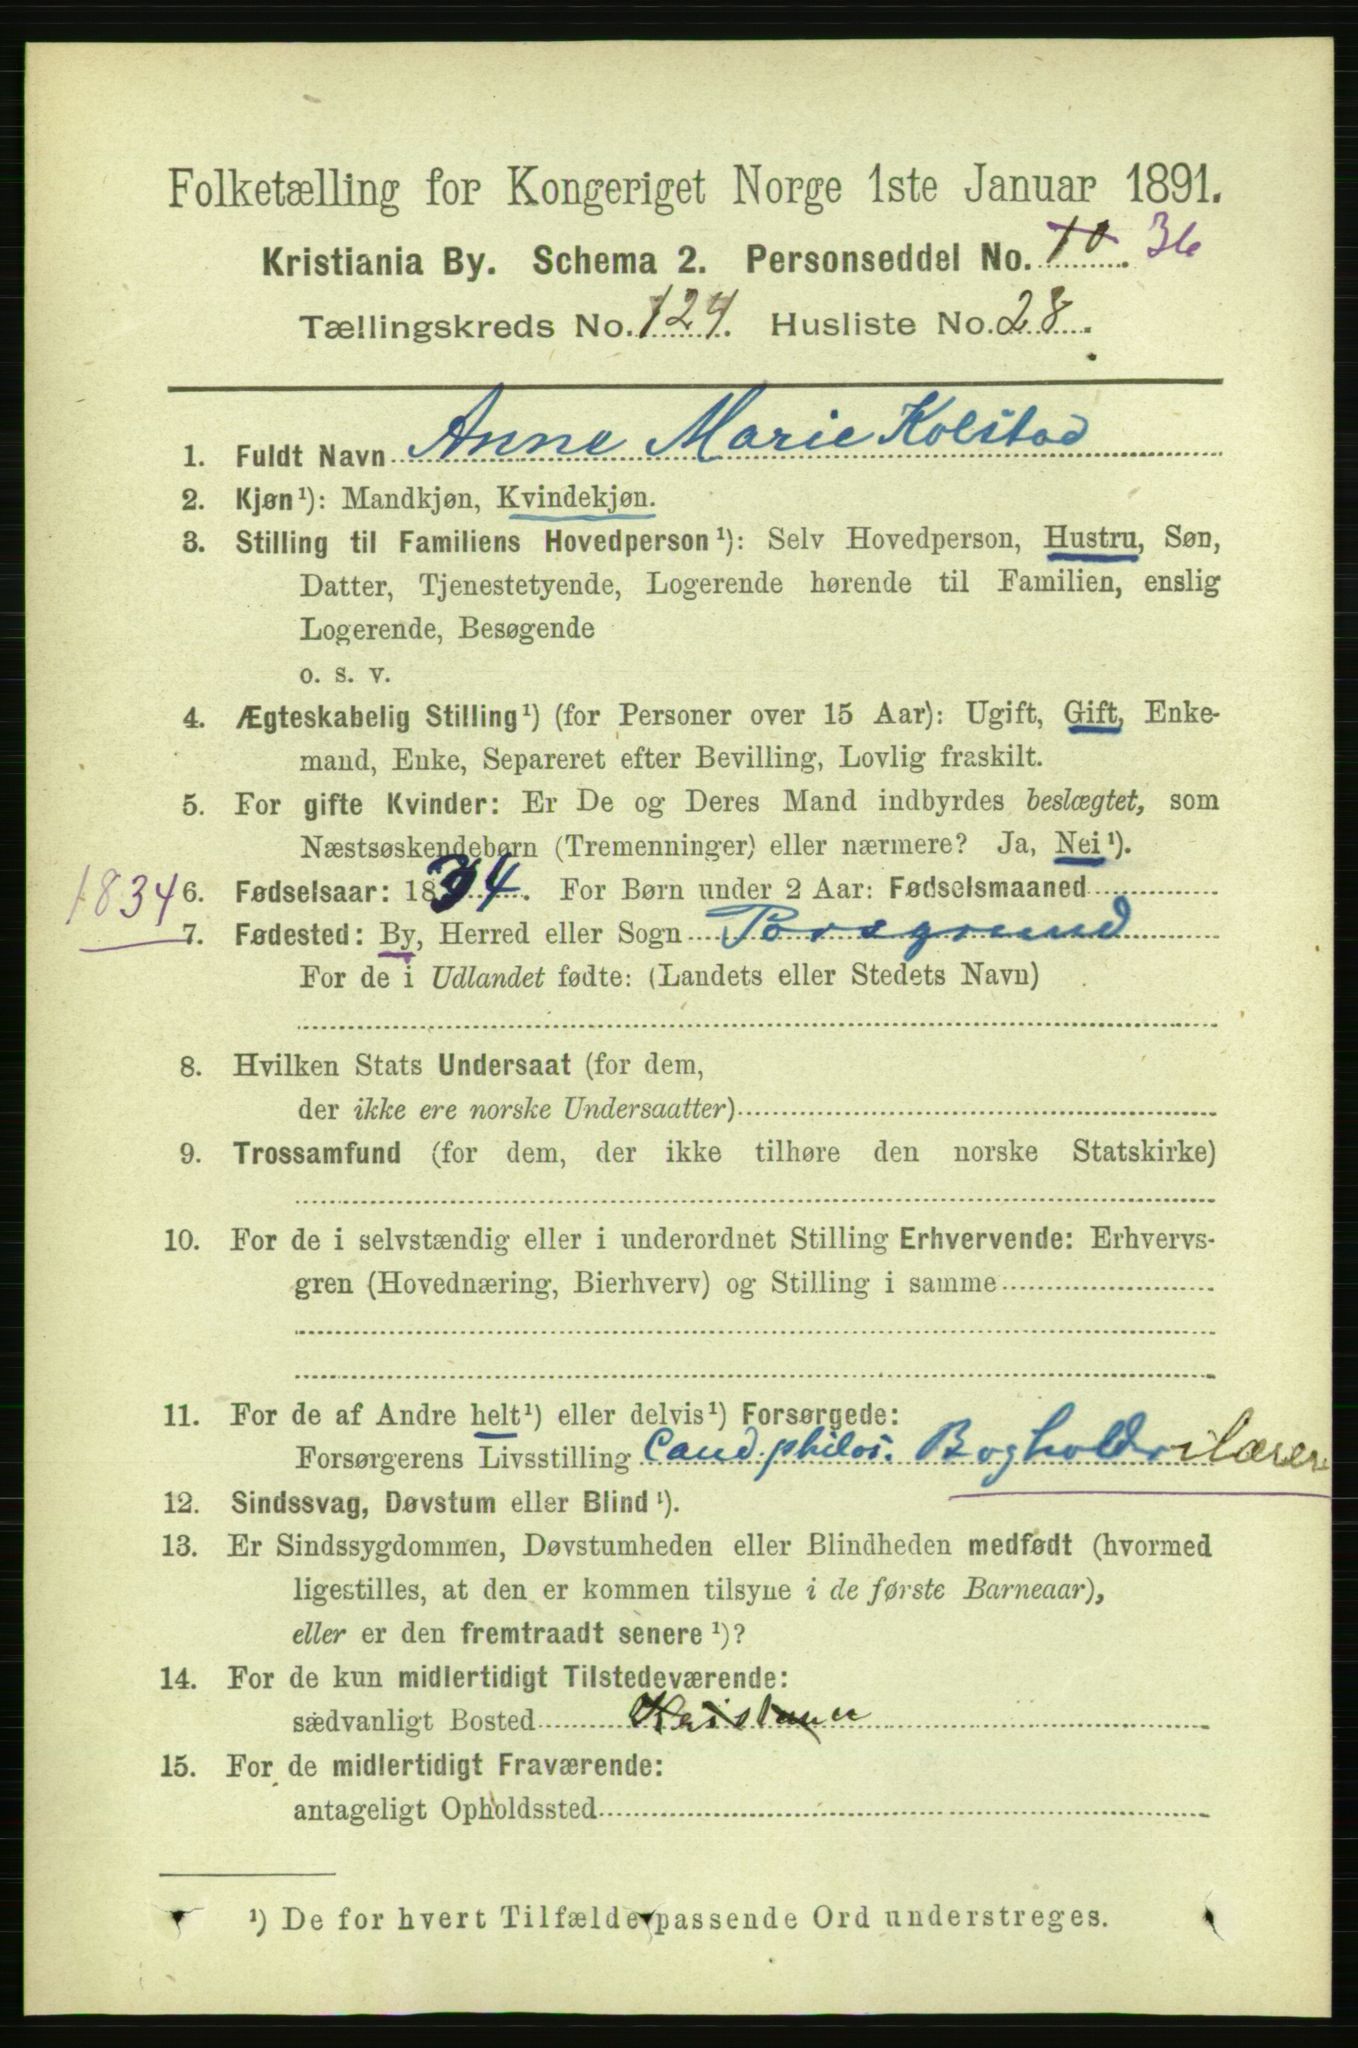 Folketælling for Kongeriget Norge 1ste Januar 1891.
Kristiania By. Schema 2. Personseddel No. 10. 36
Tællingskreds No. 124. Husliste No. 28.
1. Fuldt Navn Anne Marie Kolstad
2. Kjøn¹): Mandkjøn, Kvindekjøn.
3. Stilling til Familiens Hovedperson¹): Selv Hovedperson, Hustru, Søn,
Datter, Tjenestetyende, Logerende hørende til Familien, enslig
Logerende, Besøgende
o. s. v.
4. Ægteskabelig Stilling¹) (for Personer over 15 Aar): Ugift, Gift, Enke-
mand, Enke, Separeret efter Bevilling, Lovlig fraskilt.
5. For gifte Kvinder: Er De og Deres Mand indbyrdes beslægtet, som
Næstsøskendebørn (Tremenninger) eller nærmere? Ja, Nei¹).
1834 6. Fødselsaar: 1834. For Børn under 2 Aar: Fødselsmaaned
7. Fødested: By, Herred eller Sogn Porsgrund
For de i Udlandet fødte: (Landets eller Stedets Navn)
8. Hvilken Stats Undersaat (for dem,
der ikke ere norske Undersaatter)
9. Trossamfund (for dem, der ikke tilhøre den norske Statskirke)
10. For de i selvstændig eller i underordnet Stilling Erhvervende: Erhvervs-
gren (Hovednæring, Bierhverv) og Stilling i samme
11. For de af Andre helt¹) eller delvis¹) Forsørgede:
Forsørgerens Livsstilling Cand. philos. Bogholderilærer
12. Sindssvag, Døvstum eller Blind¹).
13. Er Sindssygdommen, Døvstumheden eller Blindheden medfødt (hvormed
ligestilles, at den er kommen tilsyne i de første Barneaar),
eller er den fremtraadt senere¹)?
14. For de kun midlertidigt Tilstedeværende:
sædvanligt Bosted
15. For de midlertidigt Fraværende:
antageligt Opholdssted
¹) De for hvert Tilfælde passende Ord understreges.